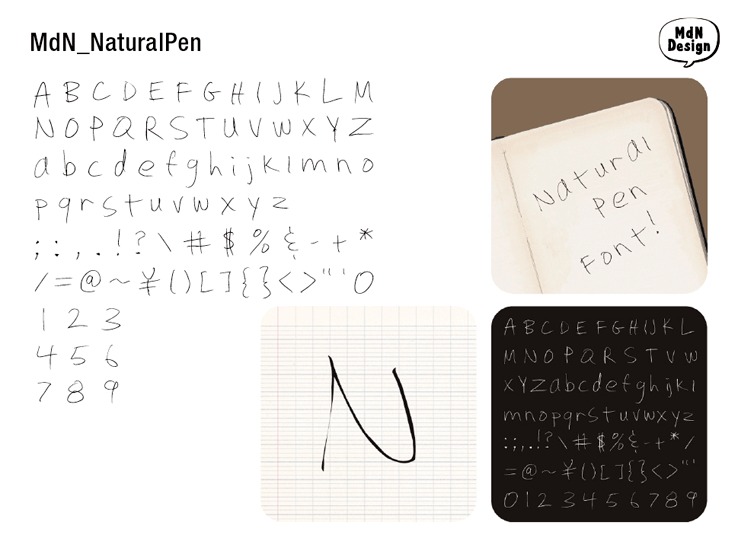 MdN_NaturalPen
MdN
Design
A B C D E F G H I J K L M
N O P Q R S T U V W X Y Z
a b c d e f g h i j k l m n o
p q r s t u v w x y z
; : , . ! ? \ # $ % & - + *
/ = @ ~ ¥ ( ) [ ] { } < > " ' 0
1 2 3
4 5 6
7 8 9
Natural
Pen
Font!
N
A B C D E F G H I J K L
M N O P Q R S T V W
X Y Z a b c d e f g h i j k l
m n o p q r s t u v w x y z
: ; , . ! ? \ # $ % & - + * /
= @ ~ ¥ ( ) [ ] { } < > " '
0 1 2 3 4 5 6 7 8 9